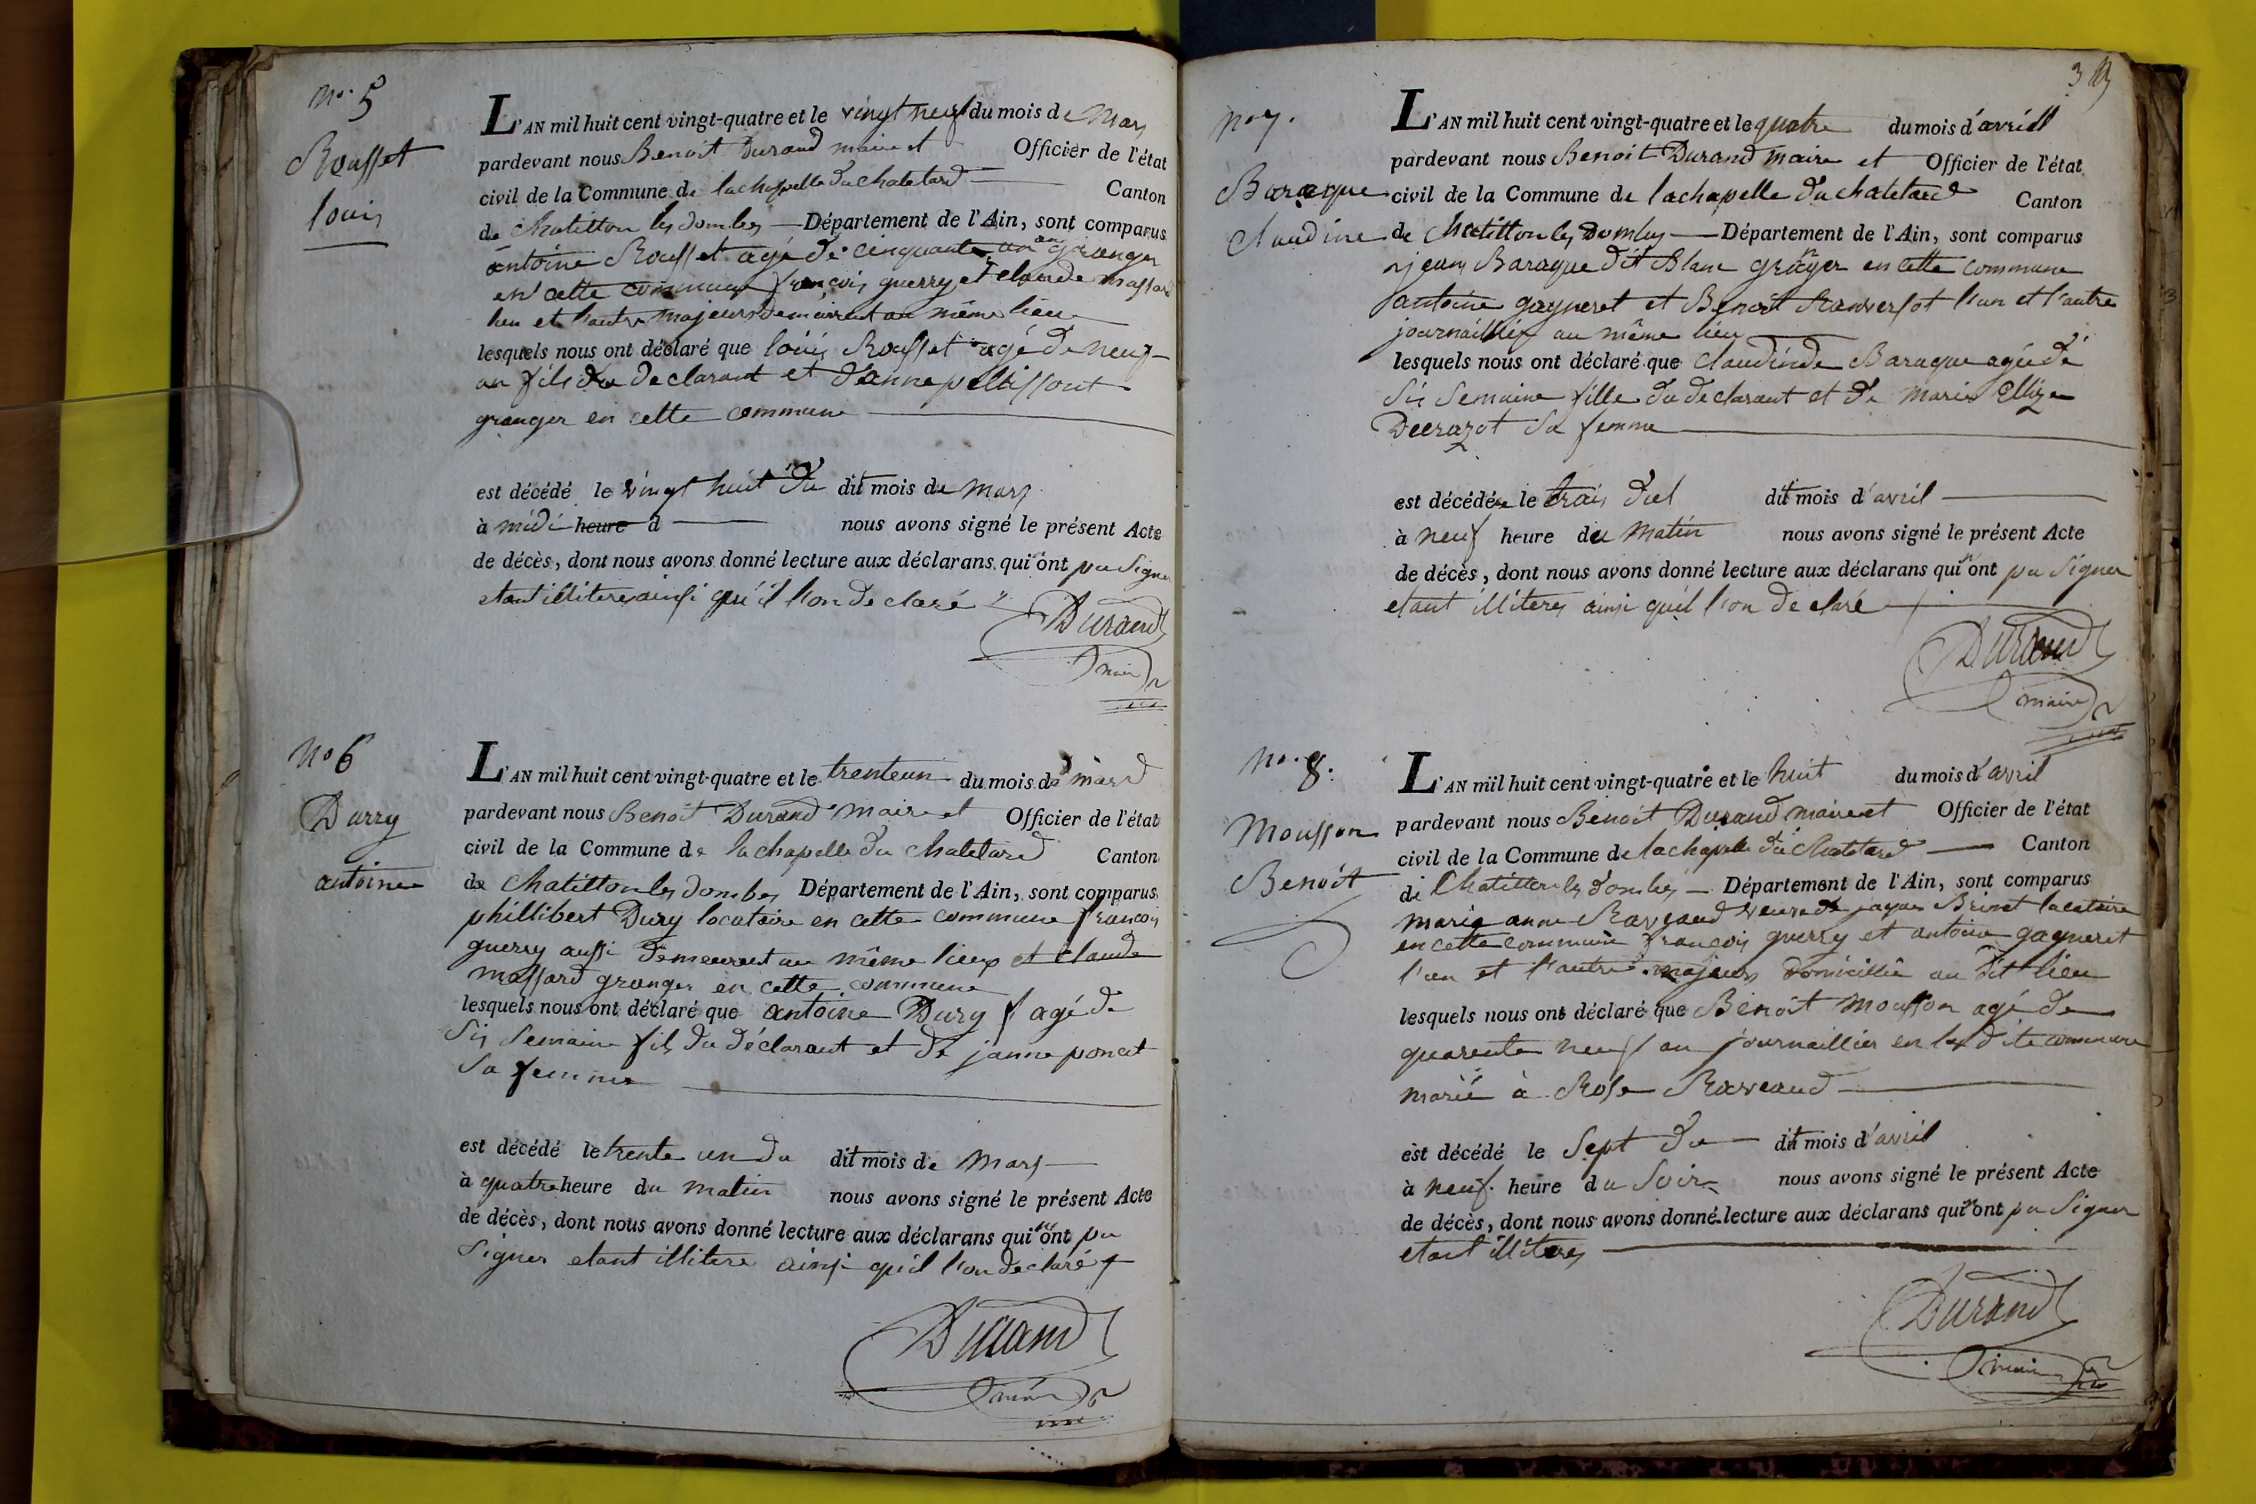 No. 5
Rousset
louis
L'AN mil huit cent vingt-quatre et le vingt neuf du mois de Mars
pardevant nous Benoit Durand maire et Officier de l'état
civil de la Commune de lachapelle du chatelard Canton
de Chatillon les dombes Département de l'Ain, sont comparus
antoine Rousset agé de cinquante un an granger
en cette commune françois guerry et claude massard
lun et l'autre majeurs demeurent au même lieu
lesquels nous ont déclaré que loüis Rousset agé de neuf
an fils du declarant et d'anne pellissont
granger en cette commune
est décédé le vingt huit du dit mois de mars
à midi heure d nous avons signé le présent Acte
de décès, dont nous avons donné lecture aux déclarans qui n'ont pu Signer
etant illiteres ainsi qu'il l'on declaré
Durand
maire
No 6
Durry
antoine
L'AN mil huit cent vingt-quatre et le trente un du mois de mars
pardevant nous Benoit Durand Maire et Officier de l'état
civil de la Commune de lachapelle du chatelard Canton
de Chatillon les dombes Département de l'Ain, sont comparus
phillibert Dury locataire en cette commune francois
guerry aussi demeurent au même lieu et Claude
massard granger en cette commune
lesquels nous ont déclaré que antoine Dury agé de
Six Semaine fils du déclarant et de janne poncet
Sa femme
est décédé le trente un du dit mois de Mars
à quatre heure du matin nous avons signé le présent Acte
de décès, dont nous avons donné lecture aux déclarans qui n'ont pu
Signer etant illitere ainsi qu'il l'on declaré
Durand
maire
3
No 7.
Baraque
Claudine
L'AN mil huit cent vingt-quatre et le quatre du mois d'avril
pardevant nous Benoit Durand Maire et Officier de l'état
civil de la Commune de lachapelle du chatelard Canton
de Chatillon les Dombes Département de l'Ain, sont comparus
jean Baraque dit Blanc granger en cette commune
antoine gagneret et Benoit l'un et l'autre
journaillier au même lieu
lesquels nous ont déclaré que Claudinde Baraque agée dé
Six Semaine fille du declarant et de Marie Ellize
Decrozot Sa femme
est décédée le trois du dit mois d'avril
à neuf heure du Matin nous avons signé le présent Acte
de décès, dont nous avons donné lecture aux déclarans qui n'ont pu Signer
etant illiteres ainsi qu'il l'on declaré
Durand
maire
No. 8.
Mousson
Benoit
L'AN mil huit cent vingt-quatre et le huit du mois d'avril
pardevant nous Benoit Durand maire et Officier de l'état
civil de la Commune de lachapelle du Chatelard Canton
de Chatillon les dombes Département de l'Ain, sont comparus
marie anne Raveaud veuve de jaques Brivet locataire
en cette commune francois guerry et antoine gagneret
l'un et l'autre majeurs domicillié au dit lieu
lesquels nous ont déclaré que Benoit Mousson agé de
quarente neuf an journaillier en la dite commune
marié à Rose Raveaud
est décédé le Sept du dit mois d'avril
à neuf heure du Soir nous avons signé le présent Acte
de décès, dont nous avons donné lecture aux déclarans qui n'ont pu Signer
etant illiteres
Durand
maire